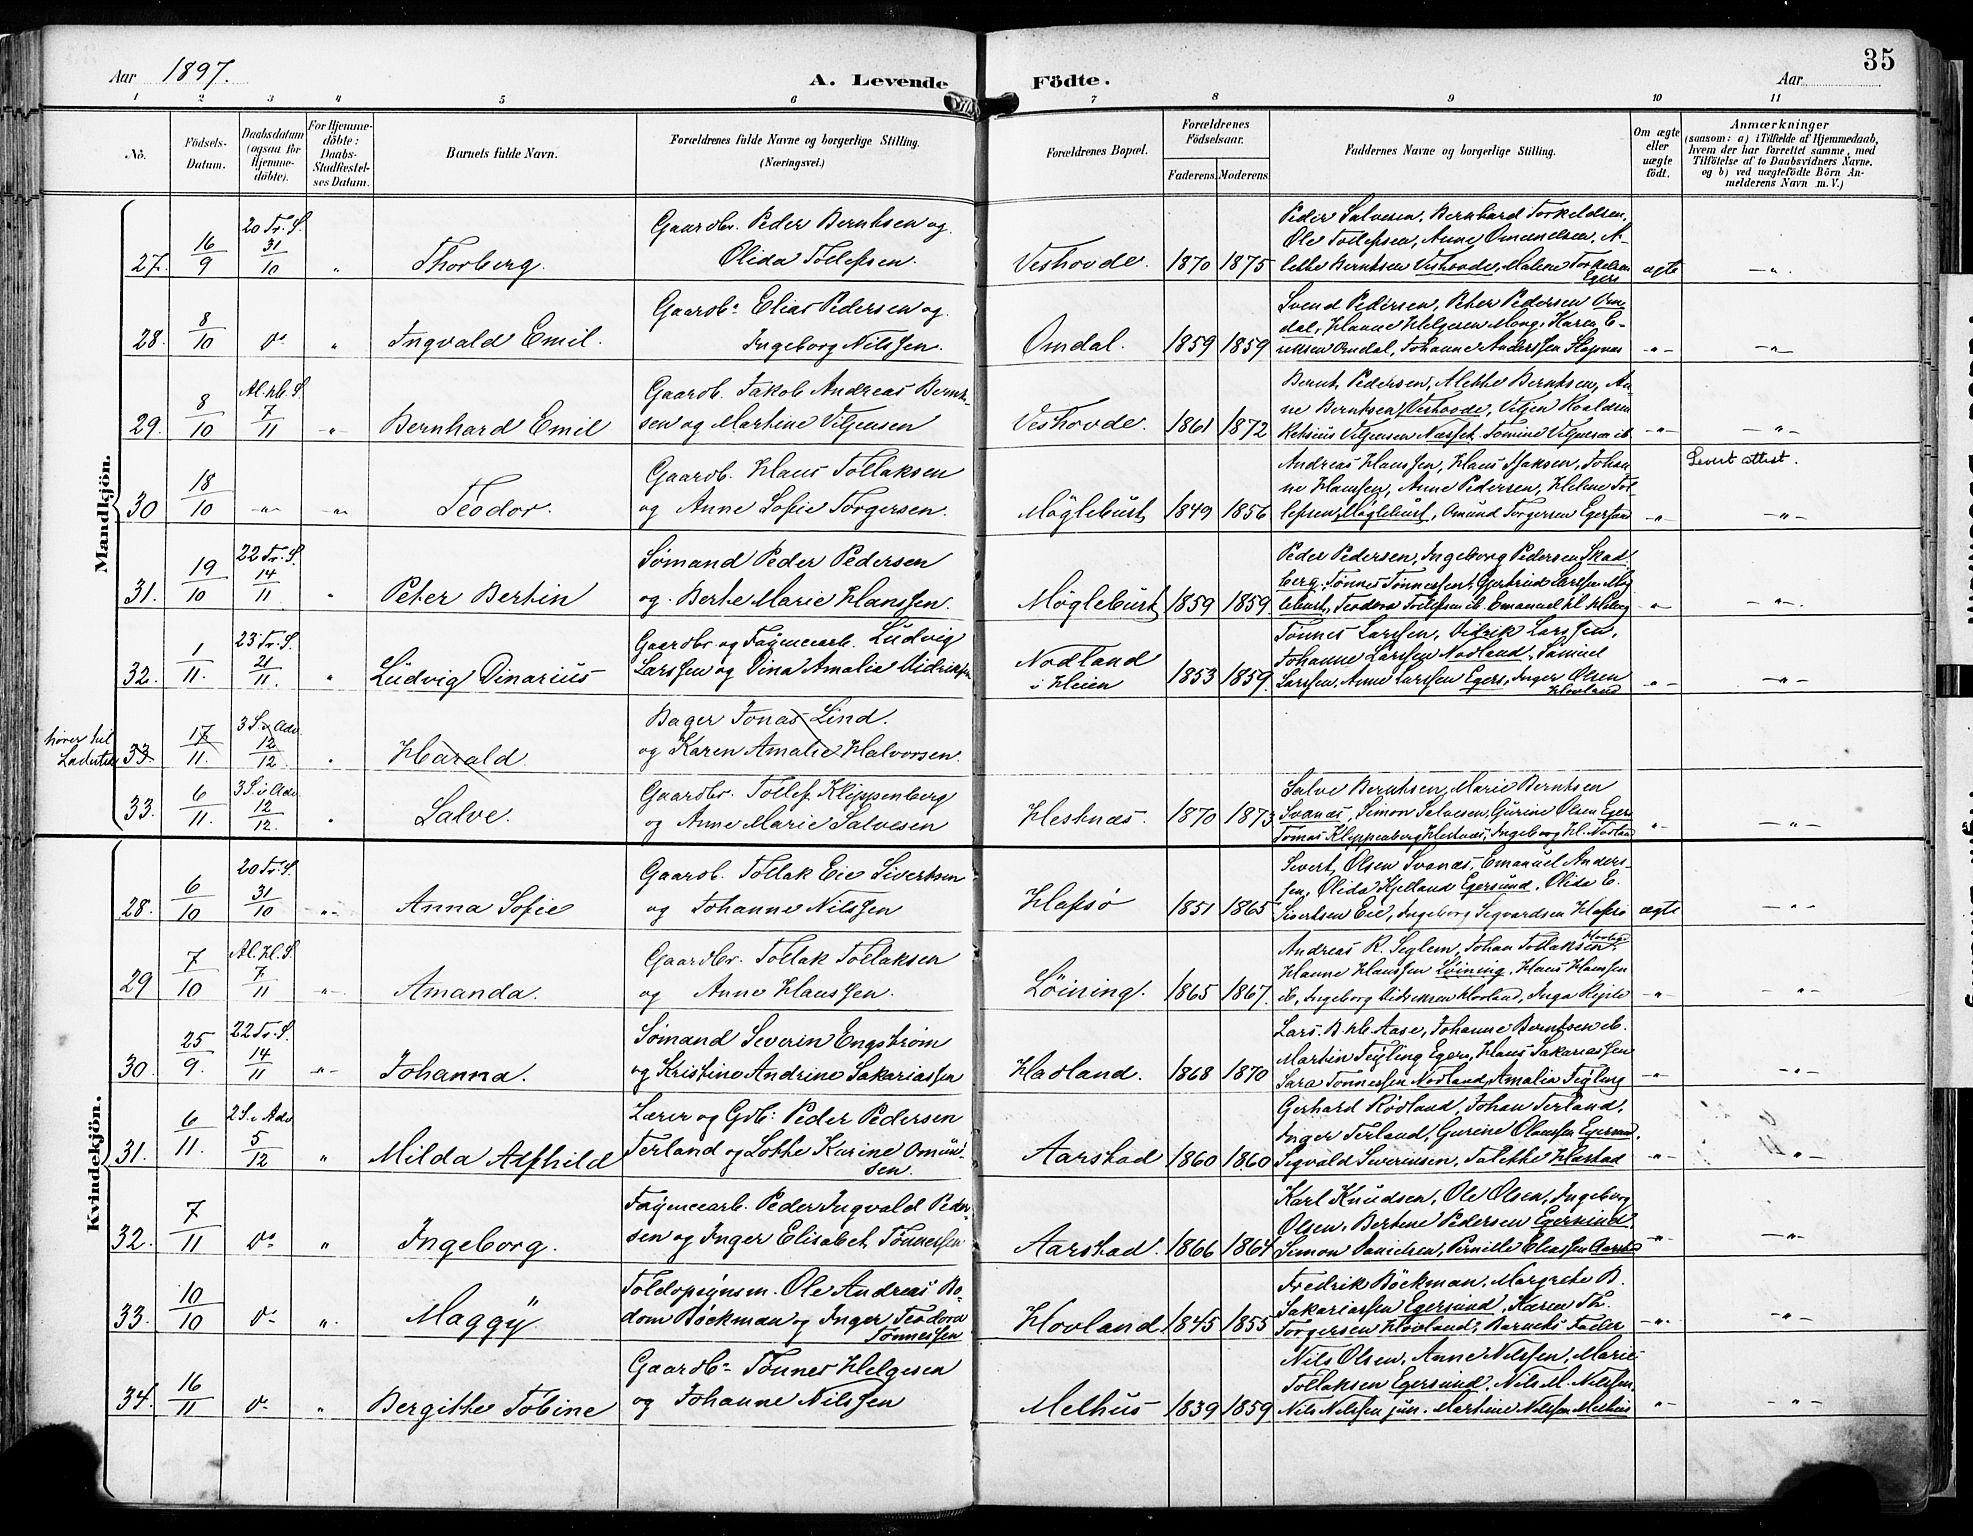 Aar 1897. A. Levende Födte. Aar 35
1 2 3 4 5 6 7 8 9 10 11
No. Födsels-Datum. Daabsdatum (ogsaa for Hjemme-döbte). For Hjemme-döbte: Daabs-Stadfæstel-ses Datum. Barnets fulde Navn. Forældrenes fulde Navne og borgerlige Stilling. (Næringsvei.) Forældrenes Bopæl. Forældrenes Födselsaar. Faderens. Moderens. Faddernes Navne og borgerlige Stilling. Om ægte eller uægte födt. Anmærkninger (saasom: a) i Tilfælde af Hjemmedaab, hvem der har forrettet samme, med Tilföielse af to Daabsvidners Navne. og b) ved uægtefödte Börn An-melderens Navn m. V.)
Mandkjön.
27. 16/9 20 Tr. S. 31/10 " Thorberg. Gaardbr. Peder Berntsen og
Olida Tollefsen. Veshovde. 1870 1875
Peder Salvesen, Bernhard Torkeldsen,
Ole Tollefsen, Anne Omundsen, A-
lette Berntsen Veshovde, Malene Torkelsen
Egers ægte —"—
28. 8/10 do " Ingvald Emil. Gaardb: Elias Pedersen og
Ingeborg Nilssen. Omdal. 1859 1859
Svend Pedersen, Peter Pedersen Om-
dal, Hanne Helgesen Mong, Karen E-
riksen Omdal, Johanne Anderssen —"— —"—
29. 8/10 Al. hl. S. 7/11 " Bernhard Emil Gaardb. Jakob Andreas Bernt-
sen og Martine Viljensen Veshovde. 1861 1872
Bernt Pedersen, Alette Berntsen, An-
ne Berntsen Veshovde, Viljen Roaldsen
Viljensen Næsset. Tomine Viljensen ib. —"— —"—
30 18/10 —"— —"— Teodor. Gaardb. Hans Tollaksen
og Anne Sofie Torgersen. Mögleburst 1849 1856
Andreas Hanssen, Hans Isaksen, Johan-
ne Hanssen, Anne Pedersen, Helene Tol-
lefsen Mögleburst, Omund Torgersen Egersund —"— Levert attest. —"—
31. 19/10 22 Tr. S. 14/11 " Peter Bertin Sømand Peder Pedersen
og Berte Marie Hanssen. Mögleburst 1859 1859.
Peder Pedersen, Ingeborg Pedersen Skad-
berg. Tønnes Tønnessen, Gertrud Larssen Mög-
leburst, Teodora Tollefsen ib. Emanuel —"— —"—
32. 1/11. 23 Tr. S. 21/11. " Ludvig Dinarius Gaardbr og Fayencearb. Ludvig
Larssen og Dina Amalie Didriksen Nodland
i Heien 1853 1859.
Tønnes Larssen, Didrik Larssen,
Johanne Larssen Nodland, Samuel
Larssen, Anne Larssen Egers, Inger Olsen
Hovland —"— —"—
hører til
Ladested
33 17/11. 3 S. i Adv. 12/12 " Harald Bager Jonas Lind.
og Karen Amalie Halvorsen.
33. 6/11. 3 S. i Adv. 12/12. " Salve. Gaardbr. Tollef Klippenberg
og Anne Marie Salvesen Hestnæs. 1870 1873
Salve Berntsen, Marie Berntsen
Svanæs, Simon Salvesen, Gurine Olsen Egers
Tomas Klippenberg Hestnæs, Ingeborg Nodland " —"—
Kvindekjön.
28. 6/10 20 Tr. S. 31/10 —"— Anna Sofie Gaardb. Tollak Eie Sivertsen
og Johanne Nilssen Hafsø 1851 1865
Sivert Olsen Svanæs, Emanuel Anders-
sen, Olida Kjelland Egersund, Olida E.
Sivertsen Eie, Ingeborg Sigvardsen Hafsø ægte —"—
29 7/10 Al. Hl. S. 7/11 —"— Amanda. Gaardbr. Tollak Tollaksen
og Anne Hanssen. Löining. 1865 1867.
Andreas R. Seglem, Johan Tollaksen
Hanne Hanssen Löining, Hans Hanssen
ib, Ingeborg Didriksen Hovland, Inga —"— —"—
30. 25/9. 22 Tr. S. 14/11 —"— Johanna. Sømand Severin Engstrøm
og Kristine Andrine Sakariassen Hadland. 1868 1870
Lars Aase, Johanne Berntsen ib.
Martin Feyling Egers, Hans Sakariassen
Sara Tønnessen Nodland, Amalia Feyling —"— —"—
31. 6/11. 2 S. i Adv 5/12 " Milda Alfhild Lærer og Gdb: Peder Pedersen
Terland og Lotte Karine Omund-
sen. Aarstad 1860 1860
Gerhard Rödland, Johan Terland,
Inger Terland, Gurine Olaussen Egersund.
Sigvald Severinsen, Tolette Harstad —"— "—
32. 7/11 do " Ingeborg. Fayencearb. Peder Ingvald Peder-
sen og Inger Elisabet Tønnessen Aarstad. 1866 1864
Karl Knudsen, Ole Olsen, Ingeborg
Olsen, Bertine Pedersen Egersund,
Simon Danielsen, Pernille Eliassen Aarstad —"— —"—
33. 10/10 do ". Maggy Toldopsynsm. Ole Andreas Bo-
dom Böckman og Inger Teodora
Tønnessen Hovland 1845 1855
Fredrik Böckman, Margrethe B.
Sakariassen Egersund, Karen Th.
Torgersen Hovland, Barnets Fader —"— "—
34. 16/11 do " Bergitte Tobine Gaardb: Tønnes Helgesen
og Johanne Nilssen Melhus 1839 1859
Nils Olsen, Anne Nilssen, Marie
Tollaksen Egersund, Nils M. Nilssen,
Nils Nilssen jun. Martine Nilssen Melhus —"— —"—